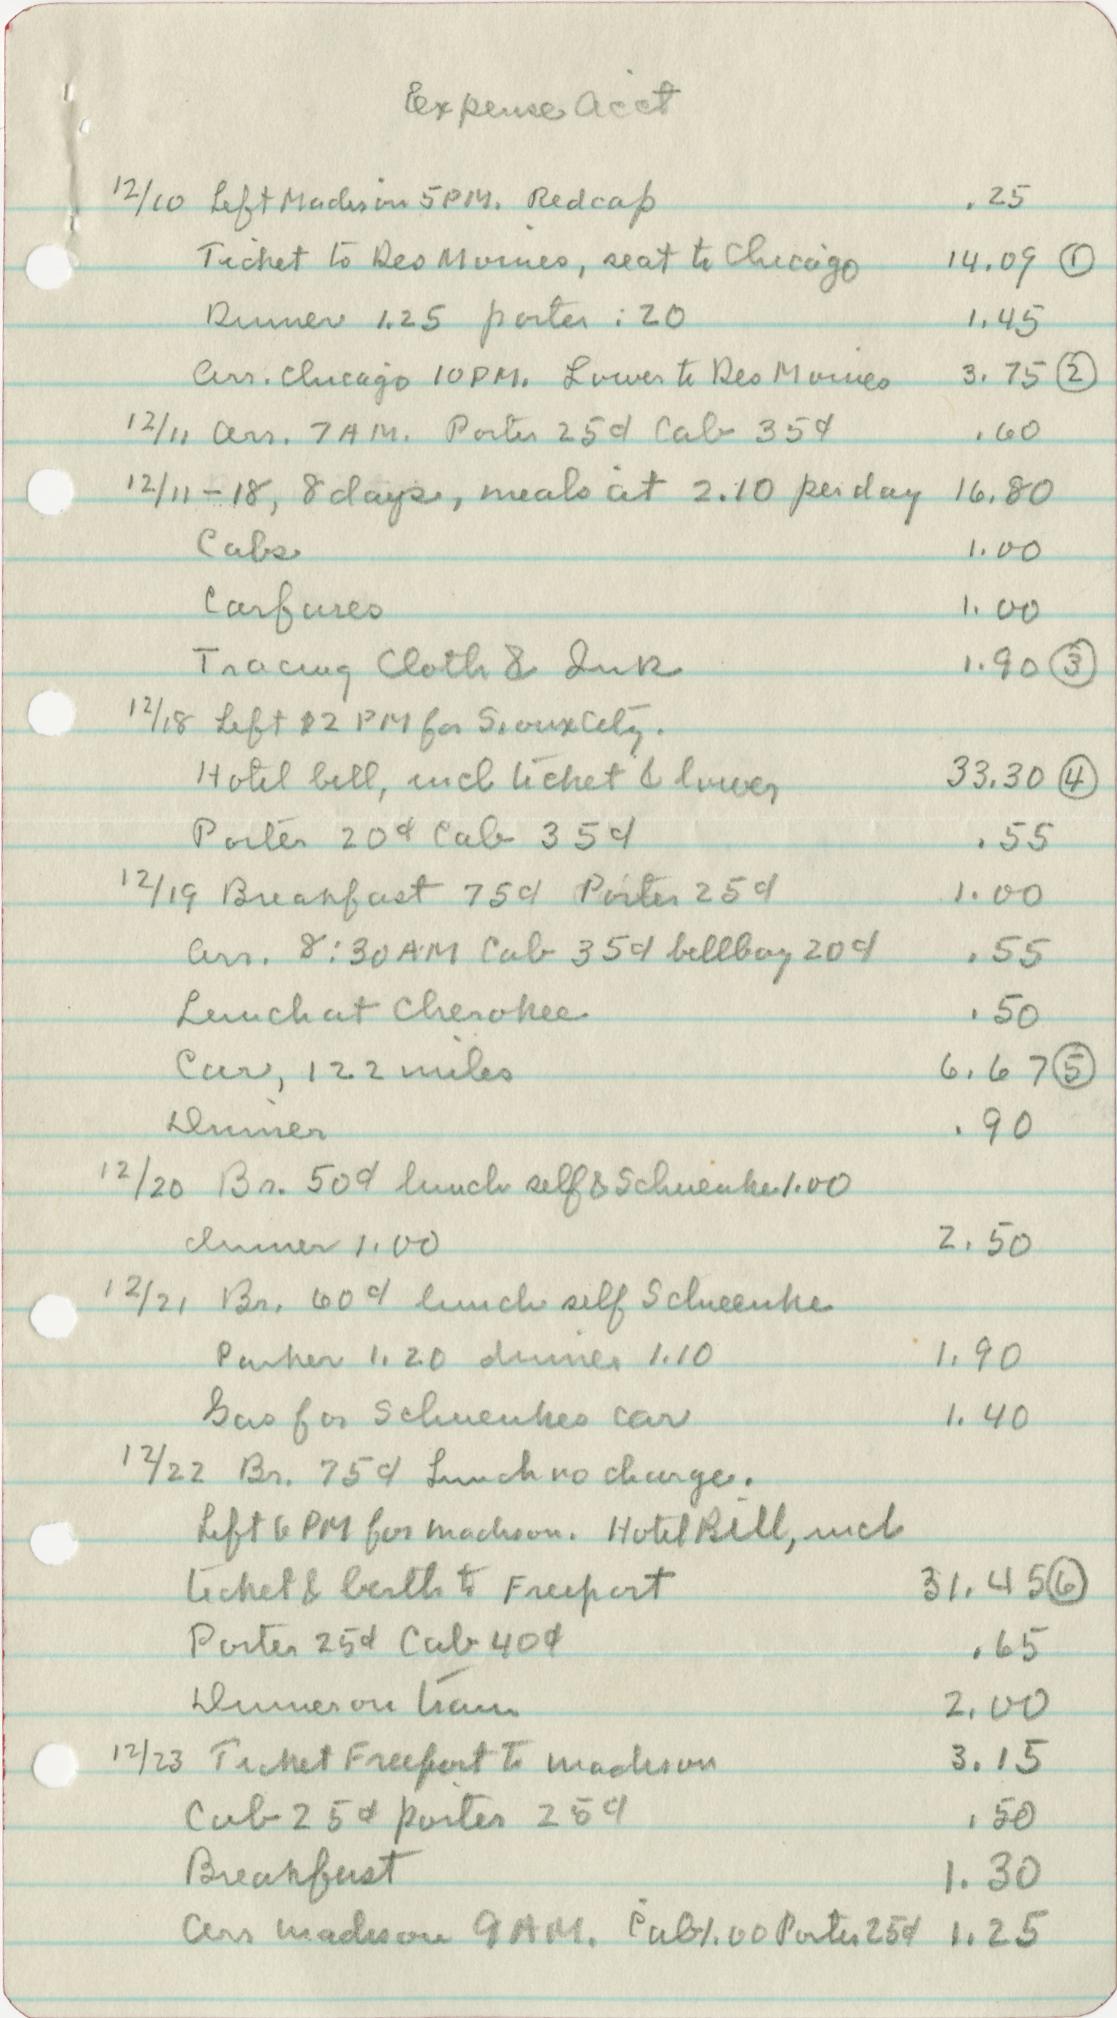 Expense Acct
12/10 Left Madison 5PM. Redcap .25
Ticket to Des Moines, seat to Chicago 14.09 ①
Dinner 1.25 porter .20 1.45
Arr. Chicago 10PM. Lower to Des Moines 3.75 ②
12/11 Arr. 7AM. Porter 25¢ Cab 35¢ .60
12/11-18, 8 days, meals at 2.10 per day 16.80
Cabs 1.00
Carfares 1.00
Tracing Cloth & Ink 1.90 ③
12/18 Left 12 PM for Sioux City.
Hotel bill, incl ticket & lower 33.30 ④
Porter 20¢ Cab 35¢ .55
12/19 Breakfast 75¢ Porter 25¢ 1.00
Arr. 8:30AM Cab 35¢ bellboy 20¢ .55
Lunch at Cherokee .50
Car, 122 miles 6.67 ⑤
Dinner .90
12/20 Br. 50¢ lunch self & Schwenke 1.00
dinner 1.00 2.50
12/21 Br. 60¢ lunch self Schwenke
Parker 1.20 dinner 1.10 1.90
Gas for Schwenkes car 1.40
12/22 Br. 75¢ Lunch no charge.
Left 6 PM for Madison. Hotel Bill, incl
ticket & berth to Freeport 31.45 ⑥
Porter 25¢ Cab 40¢ .65
Dinner on train 2.00
12/23 Ticket Freeport to Madison 3.15
Cab 25¢ porter 25¢ .50
Breakfast 1.30
Arr Madison 9AM. Cab 1.00 Porter 25¢ 1.25